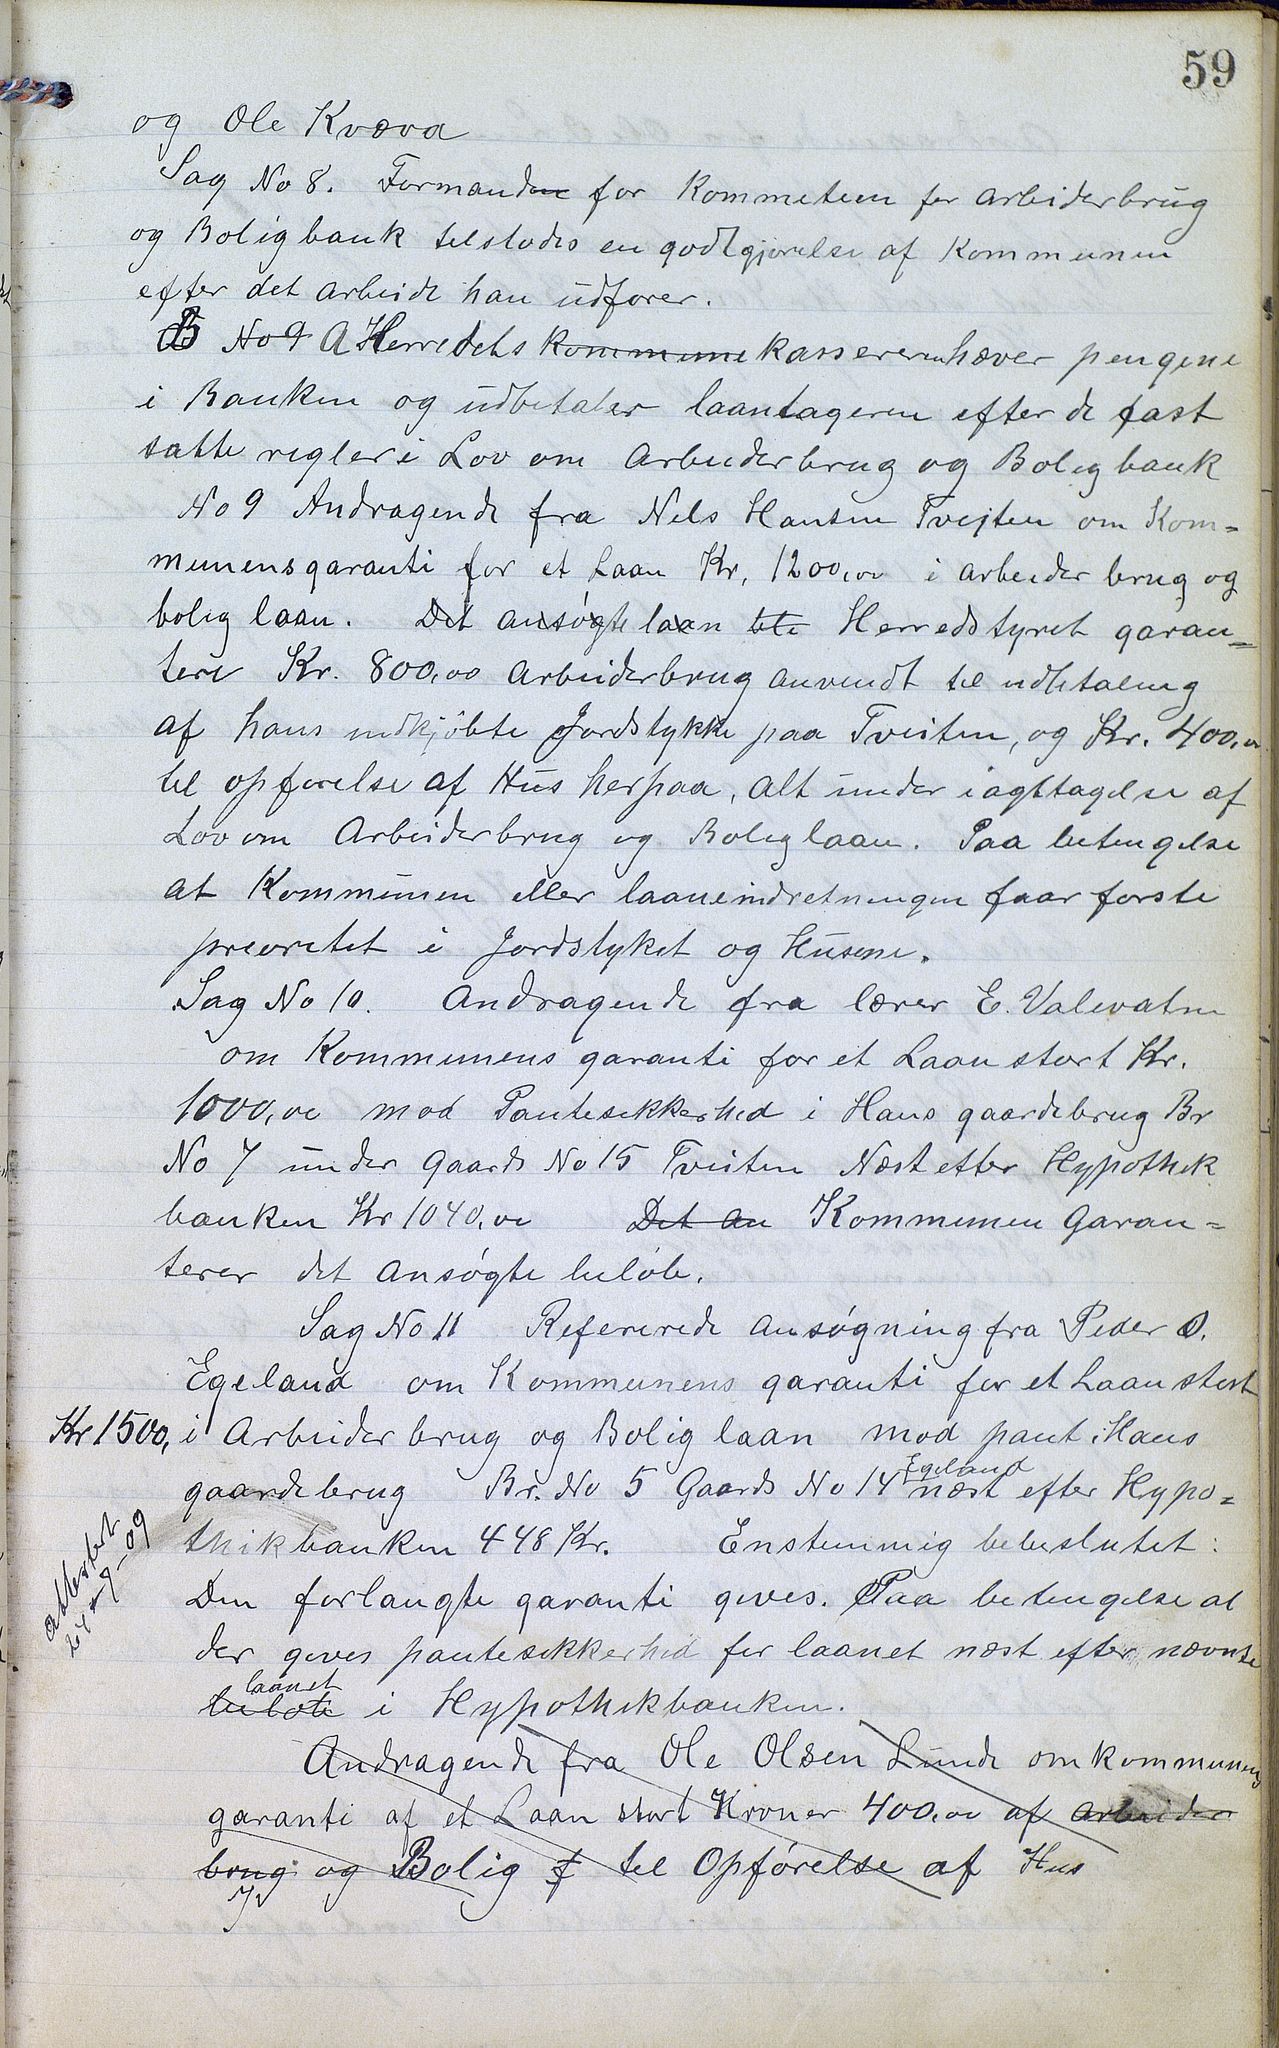 59
og Ole Kvæva
Sag No 8. Formanden for Kommeteen for arbeiderbrug
og Boligbank tilstodes en godtgjørelse af Kommunen
efter det arbeide han udfører.
B No 9 A Herredets kommune kassereren hæver pengene
i Banken og udbetaler laantageren efter de fast
satte regler i Lov om Arbeiderbrug og Boligbank
No 9 Andragende fra Nels Hansen Tvejten om Kom=
munensgaranti for et Laan Kr. 1200,00 i arbeider brug og
bolig laan. Det ansøgte laan Herredstyret garan=
tere Kr. 800,00 Arbeiderbrug anvendt til udbetaling
af hans indkjöbte Jordstykke paa Tveiten, og Kr. 400,00
til opførelse af Hus herpaa, alt under iagttagelse af
Lov om Arbeiderbrug og Boliglaan. Paa betengelse
at Kommunen eller laaneindretningen faar første
preoritet i Jordstyket og Husene.
Sag No 10. Andragende fra lærer E. Valevatne
om Kommunens garanti for et Laan stort Kr.
1000,00 mod Pantesikkerhed i Hans gaardebrug Br
No 7 under Gaards No 15 Tveiten Næst efter Hypothek
banken Kr 1040,00 Det an Kommunen Garan=
terer det ansøgte beløb.
Sag No 11 Refererede ansøgning fra Peder O.
Egeland om Kommunens garanti for et Laan stort
Kr 1500, i Arbeider brug og Bolig laan mod pant i Hans
gaardebrug Br. No 5 Gaards No 14 Egeland næst efter Hypo=
thikbanken 448 Kr. Enstemmig bebeslutet:
attestert
24-9-09
Den forlangte garanti gives. Paa betengelse at
der gives pantesikkerhed for laanet næst efter nævnte
laanet
beløb i Hypothekbanken.
Andragende fra Ole Olsen Lunde om kommunens
garanti af et Laan stort Kroner 400,00 af arbeider
brug og Bolig f til Opførelse af Hus